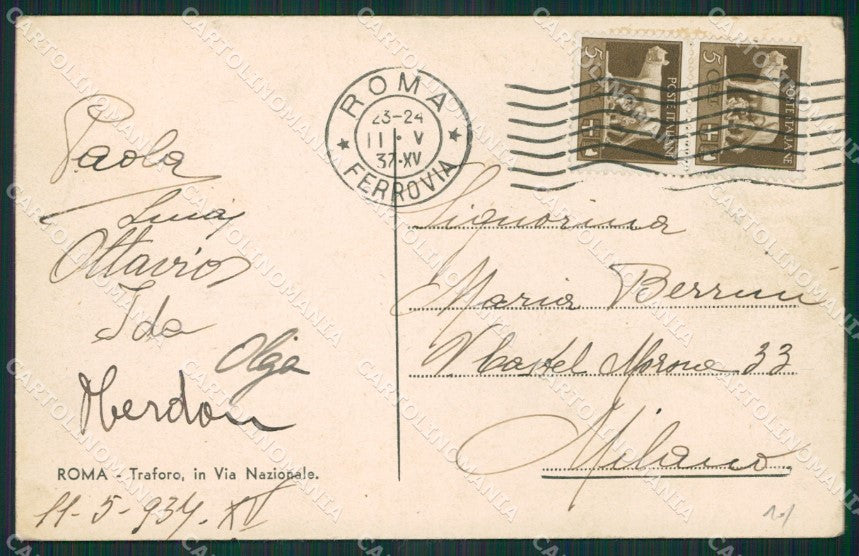 ROMA
23-24
11·V
37·XV
FERROVIA
5
CENT
POSTE ITALIANE
5
CENT
POSTE ITALIANE
Paola
Ottavio
Ida
Olga
Signorina
Maria Berrini
V Castel Morone 33
Milano
ROMA - Traforo, in Via Nazionale.
11-5-937. XV
CARTOLINOMANIA